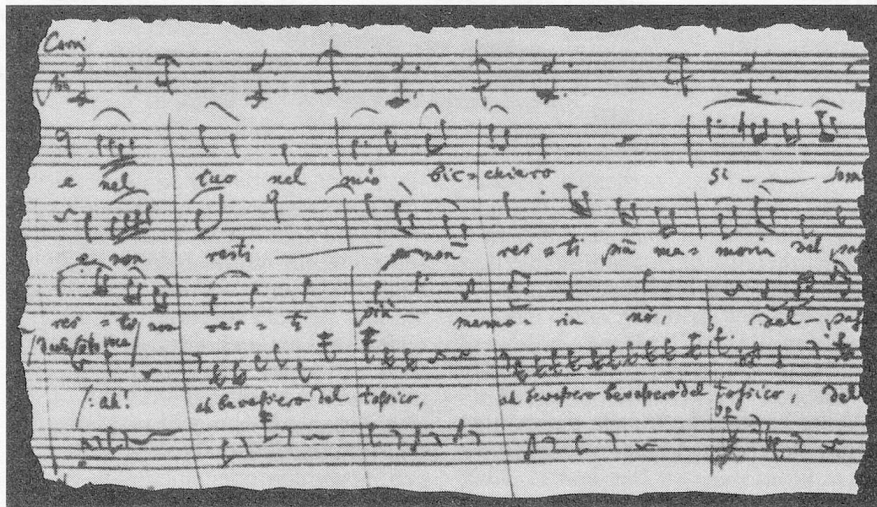 Corni
e nel tuo nel mio bic = chiero si som
e non resti e non res = ti più me = moria del pas
res = ti non res = ti più memo = ria nò, del pas
/: ah! ah bevessero del tossico, ah bevessero bevessero del tossico, del